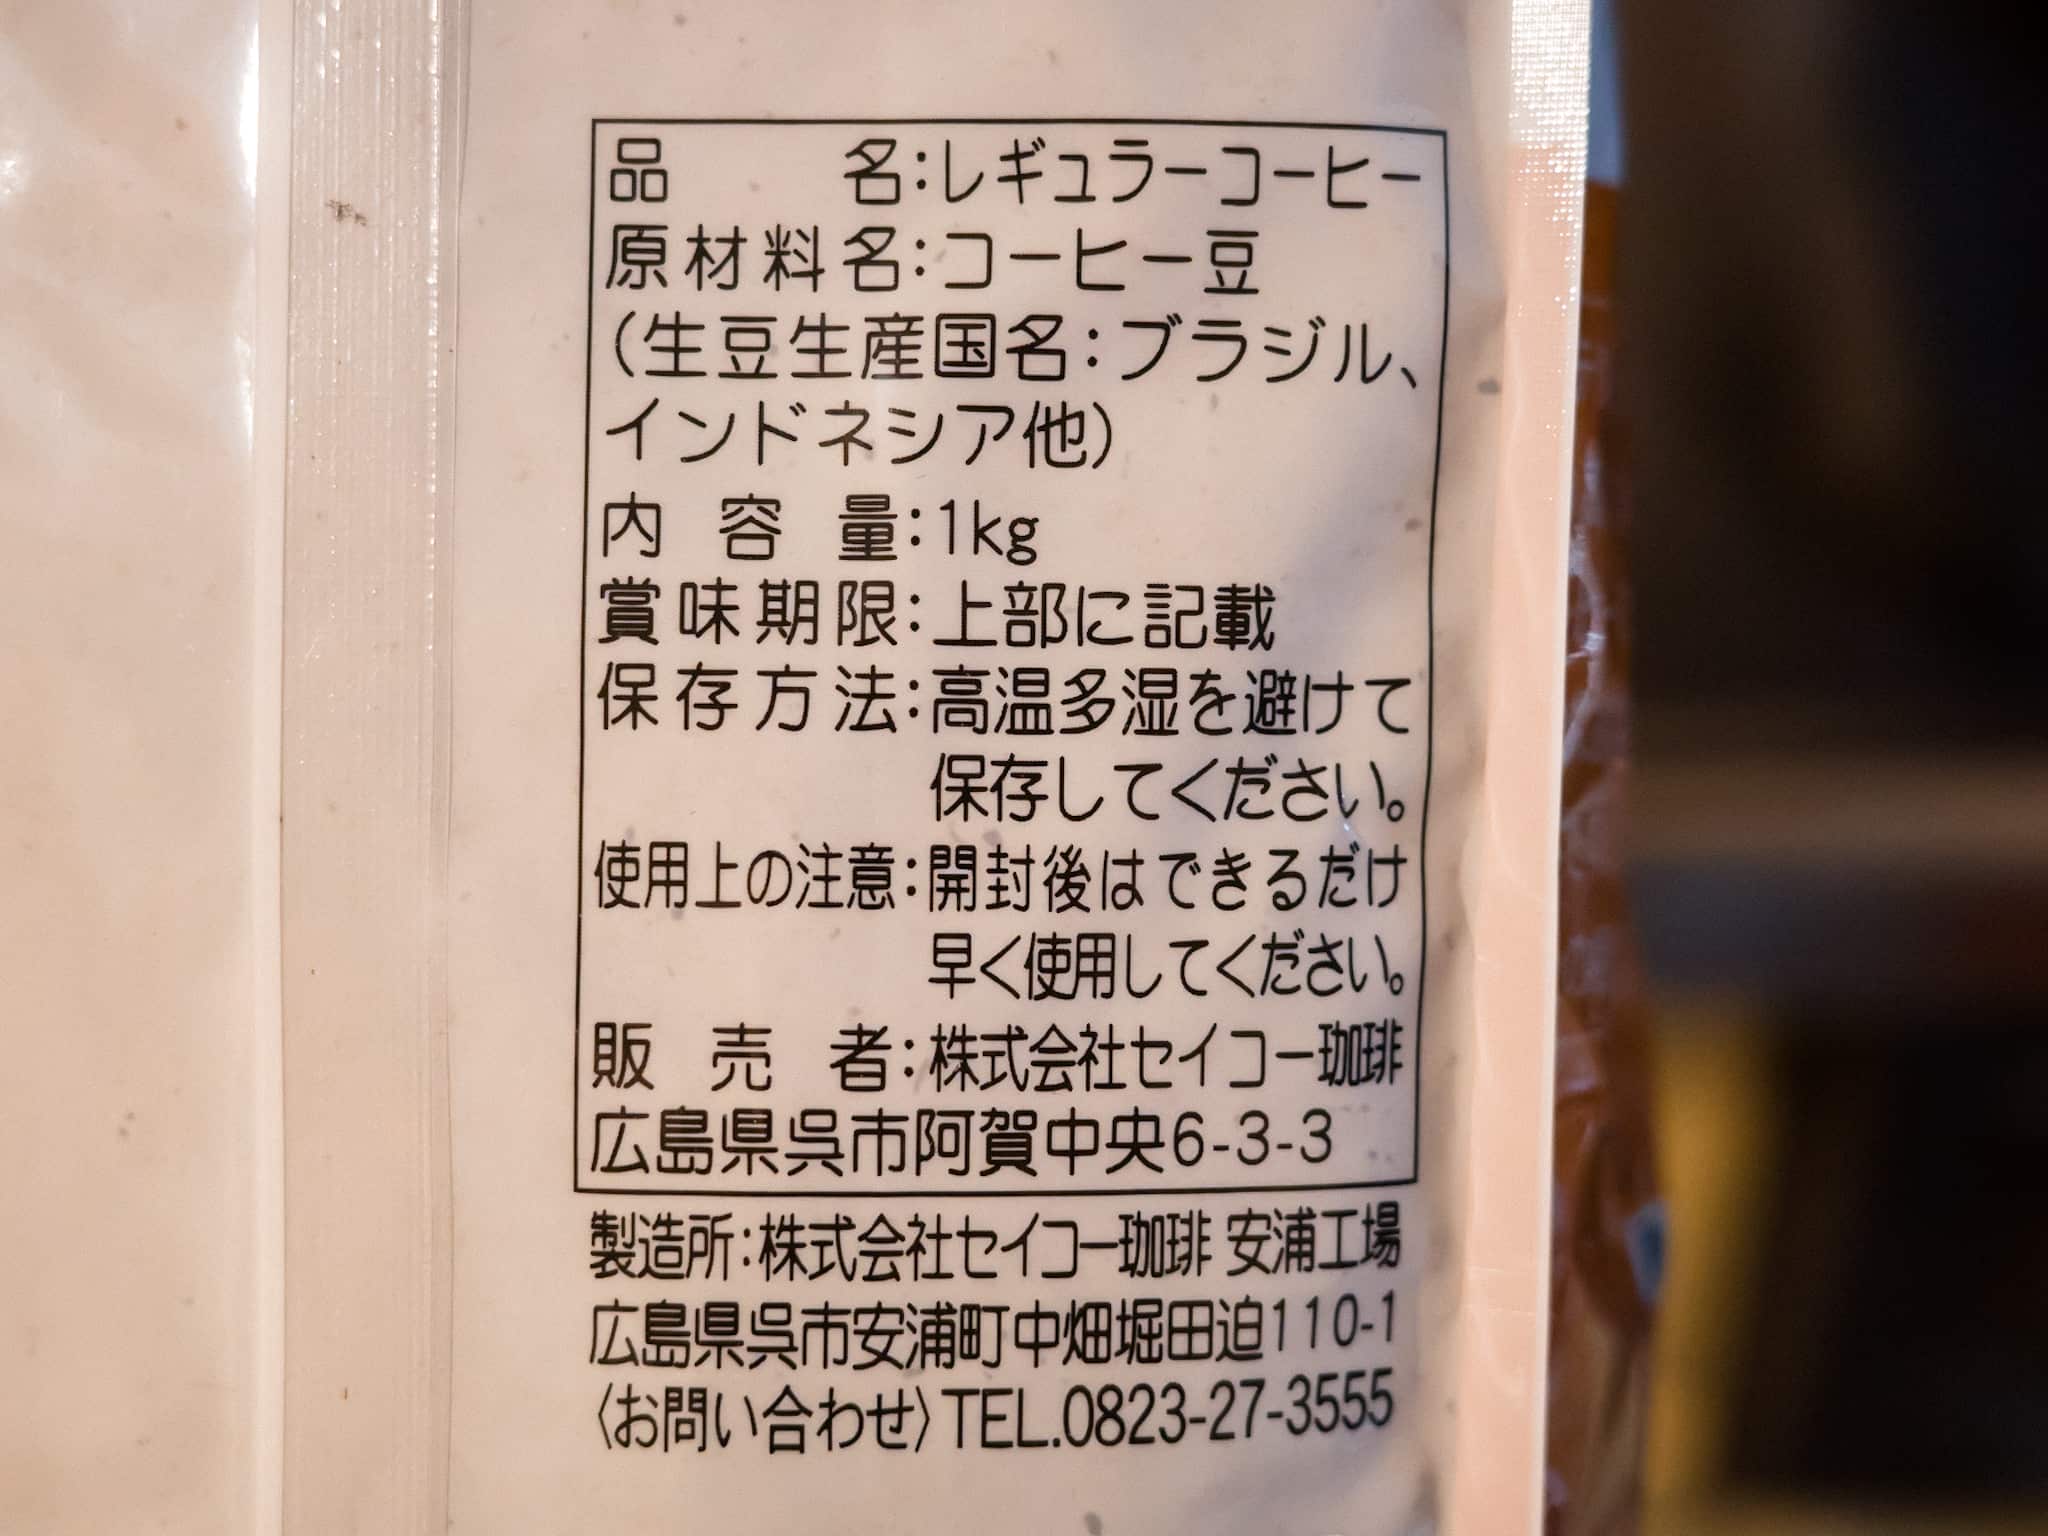 品名:レギュラーコーヒー
原材料名:コーヒー豆
(生豆生産国名:ブラジル、
インドネシア他)
内容量:1kg
賞味期限:上部に記載
保存方法:高温多湿を避けて
保存してください。
使用上の注意:開封後はできるだけ
早く使用してください。
販売者:株式会社セイコー珈琲
広島県呉市阿賀中央6-3-3
製造所:株式会社セイコー珈琲 安浦工場
広島県呉市安浦町中畑堀田迫110-1
〈お問い合わせ〉TEL.0823-27-3555